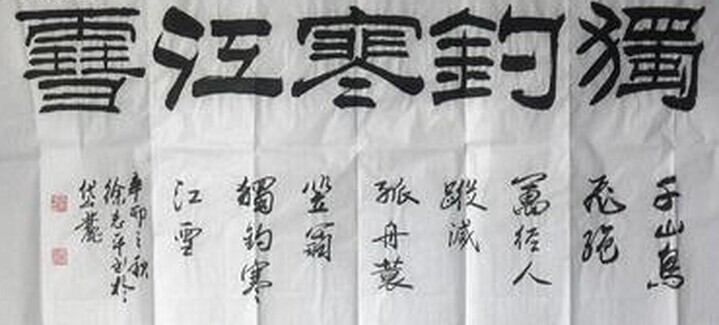 獨釣寒江雪
千山鳥
飛絕
萬徑人
蹤滅
孤舟蓑
笠翁
獨釣寒
江雪
辛卯之秋
徐志平书於
岱麓